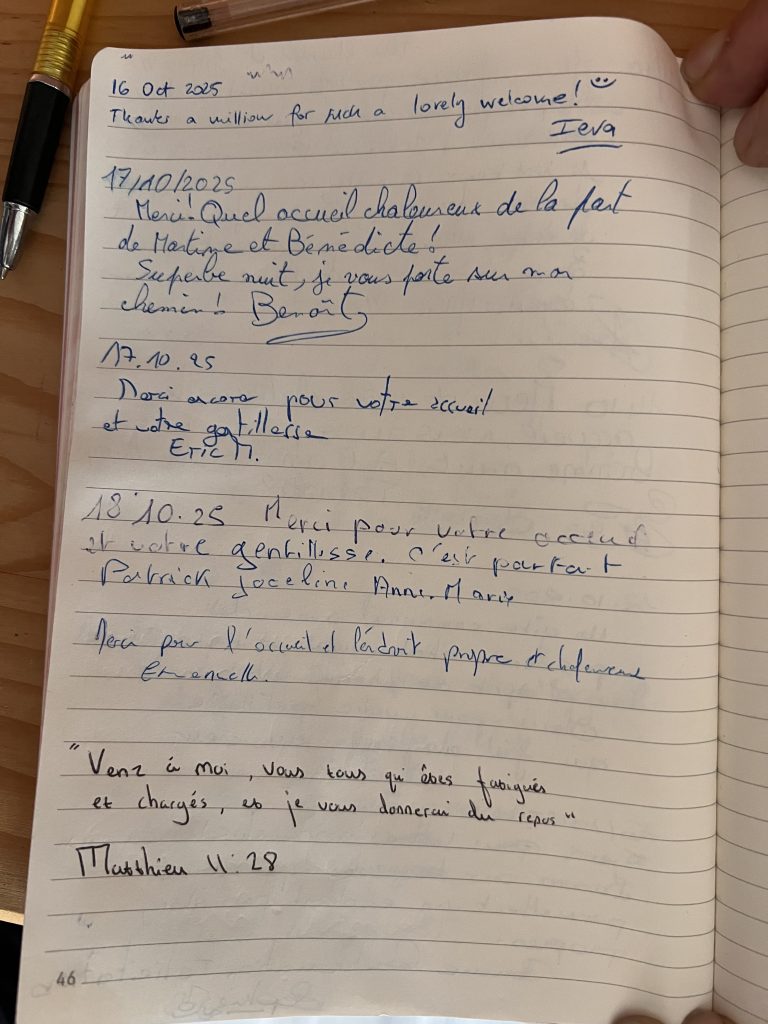 16 Oct 2025
Thanks a million for such a lovely welcome!
Ieva
17/10/2025
Merci! Quel accueil chaloureux de la part
de Martine et Bénédicte!
Superbe nuit, je vous porte sur mon
chemin! Benoît
17.10.25
Merci encore pour votre accueil
et votre gentillesse
Eric M.
18.10.25 Merci pour votre accueil
et votre gentillesse. C'est parfait
Patrick Joceline Anne-Marie
Merci pour l'accueil et l'endroit propre et
"Venz à moi, vous tous qui êtes fatigués
et chargés, et je vous donnerai du repos"
Matthieu 11:28
46